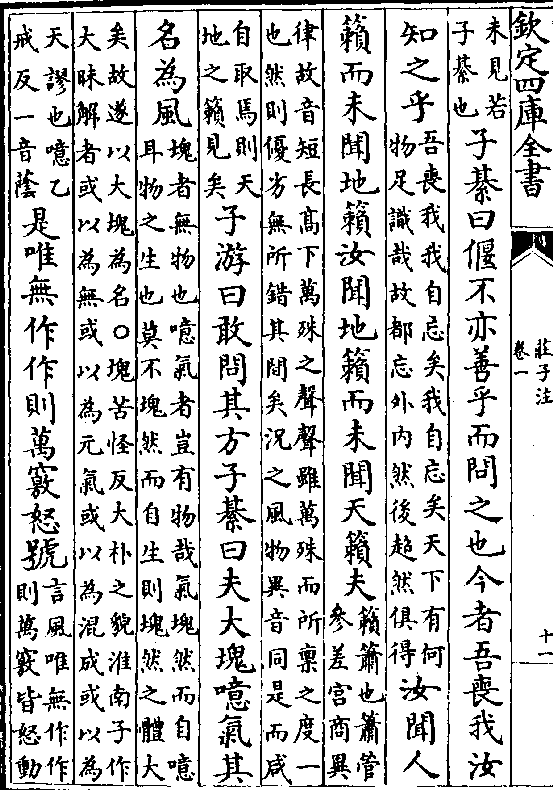 欽定四庫全書
莊子注
卷一
十一
未見若
子綦也
子綦曰偃不亦善乎而問之也今者吾喪我汝
知之乎
吾喪我我自忘矣我自忘矣天下有何
物足識哉故都忘外内然後超然俱得
汝聞人
籟而未聞地籟汝聞地籟而未聞天籟夫
籟簫也簫管
參差宮商異
律故音短長髙下萬殊之聲聲雖萬殊而所禀之度一
也然則優劣無所錯其間矣況之風物異音同是而咸
自取焉則天
地之籟見矣
子游曰敢問其方子綦曰夫大塊噫氣其
名為風
塊者無物也噫氣者豈有物哉氣塊然而自噫
耳物之生也莫不塊然而自生則塊然之體大
矣故遂以大塊為名○塊苦怪反大朴之貌淮南子作
大昧解者或以為無或以為元氣或以為混成或以為
天謬也噫乙
戒反一音蔭
是唯無作作則萬竅怒號
言風唯無作作
則萬竅皆怒動